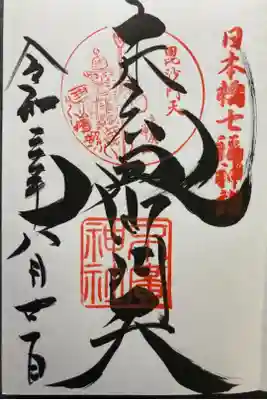 日本橋七福神
毘沙門天
末廣毘沙門天
末廣
神社
令和三年八月廿一日